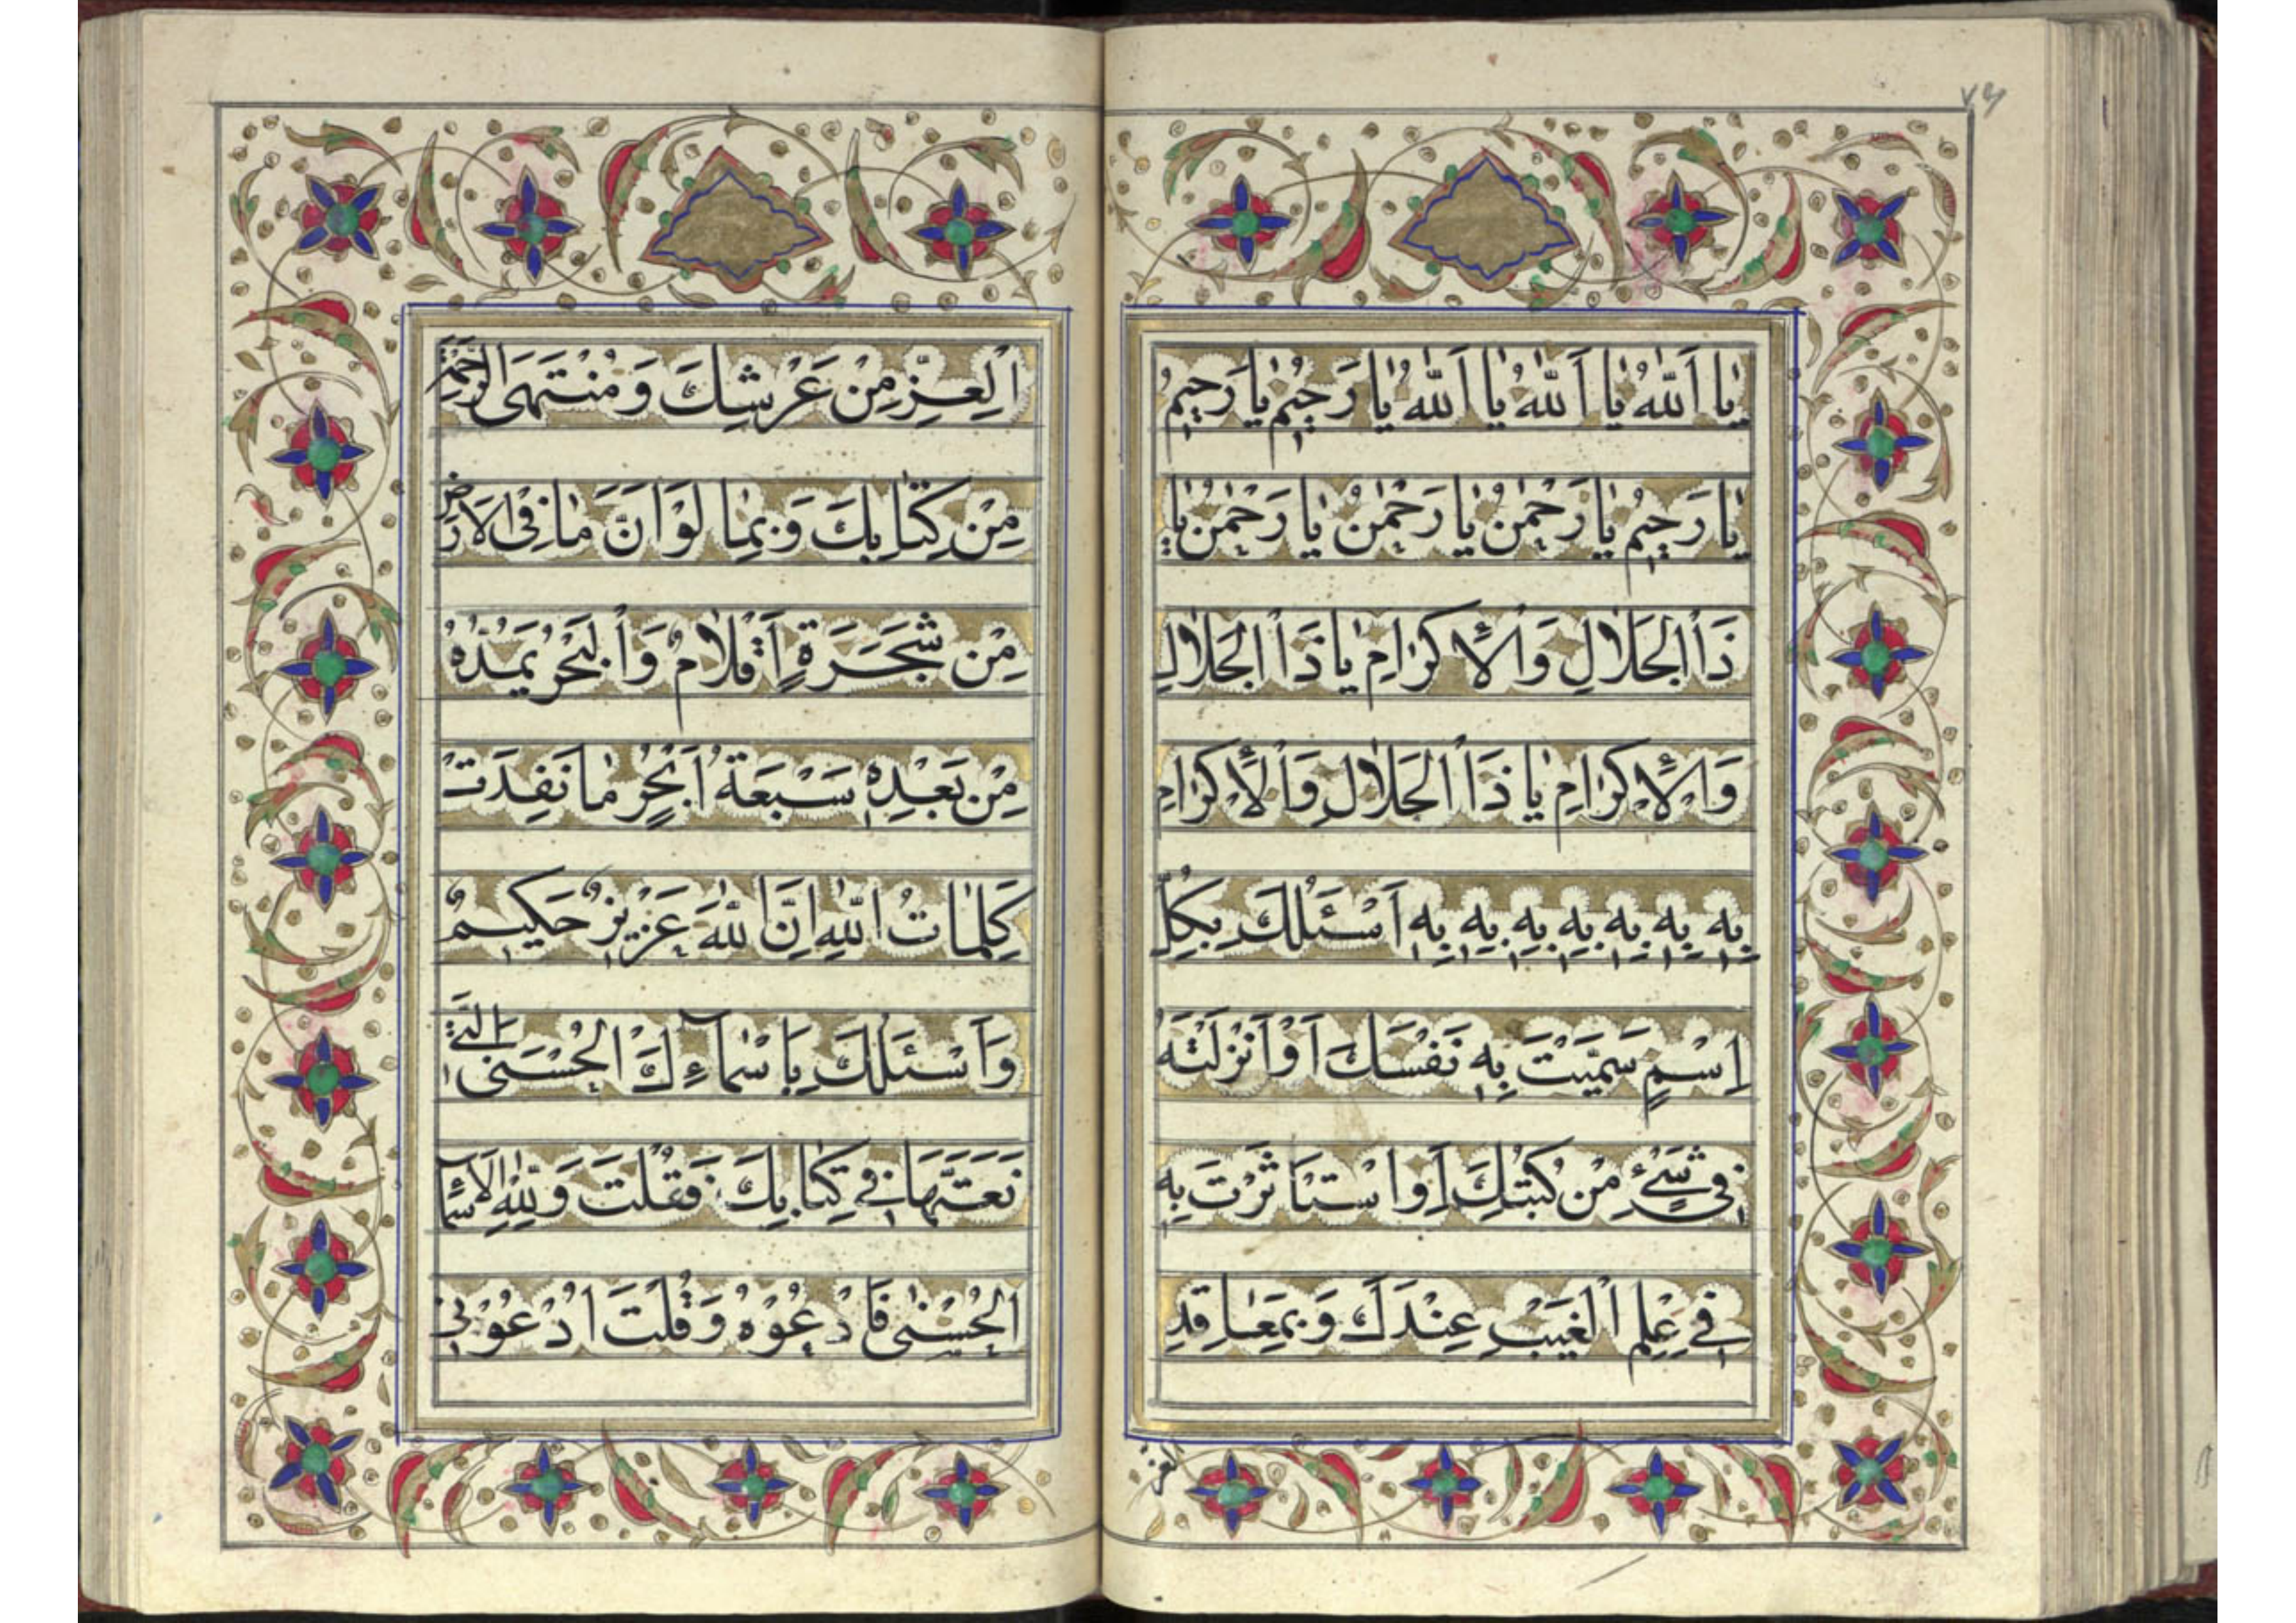 ٧٩
يٰا اَللّٰهُ يٰا اَللّٰهُ يٰا اَللّٰهُ يٰا رَحيٖمُ يٰا رَحيٖمُ
يٰا رَحيٖمُ يٰا رَحْمٰنُ يٰا رَحْمٰنُ يٰا رَحْمٰنُ يٰا
ذَا الْجَلٰالِ وَالْاِكْرٰامِ يٰا ذَا الْجَلٰالِ
وَالْاِكْرٰامِ يٰا ذَا الْجَلٰالِ وَالْاِكْرٰامِ
بِهٖ بِهٖ بِهٖ بِهٖ بِهٖ بِهٖ بِهٖ اَسْئَلُكَ بِكُلِّ
اِسْمٍ سَمَّيْتَ بِهٖ نَفْسَكَ اَوْ اَنْزَلْتَهُ
فيٖ شَيْءٍ مِنْ كُتُبِكَ اَوِ اسْتَأْثَرْتَ بِهٖ
فيٖ عِلْمِ الْغَيْبِ عِنْدَكَ وَبِمَعٰاقِدِ
العز
الْعِزِّ مِنْ عَرْشِكَ وَمُنْتَهَى الرَّحْمَةِ
مِنْ كِتٰابِكَ وَبِمٰا لَوْ اَنَّ مٰا فِى الْاَرْضِ
مِنْ شَجَرَةٍ اَقْلٰامٌ وَالْبَحْرُ يَمُدُّهُ
مِنْ بَعْدِهٖ سَبْعَةُ اَبْحُرٍ مٰا نَفِدَتْ
كَلِمٰاتُ اللّٰهِ اِنَّ اللّٰهَ عَزيٖزٌ حَكيٖمٌ
وَاَسْئَلُكَ بِاَسْمٰاءِكَ الْحُسْنَى الَّتيٖ
نَعَتَّهٰا فيٖ كِتٰابِكَ فَقُلْتَ وَلِلّٰهِ الْاَسْمٰاءُ
الْحُسْنٰى فَادْعُوْهُ وَقُلْتَ ادْعُوْنيٖ